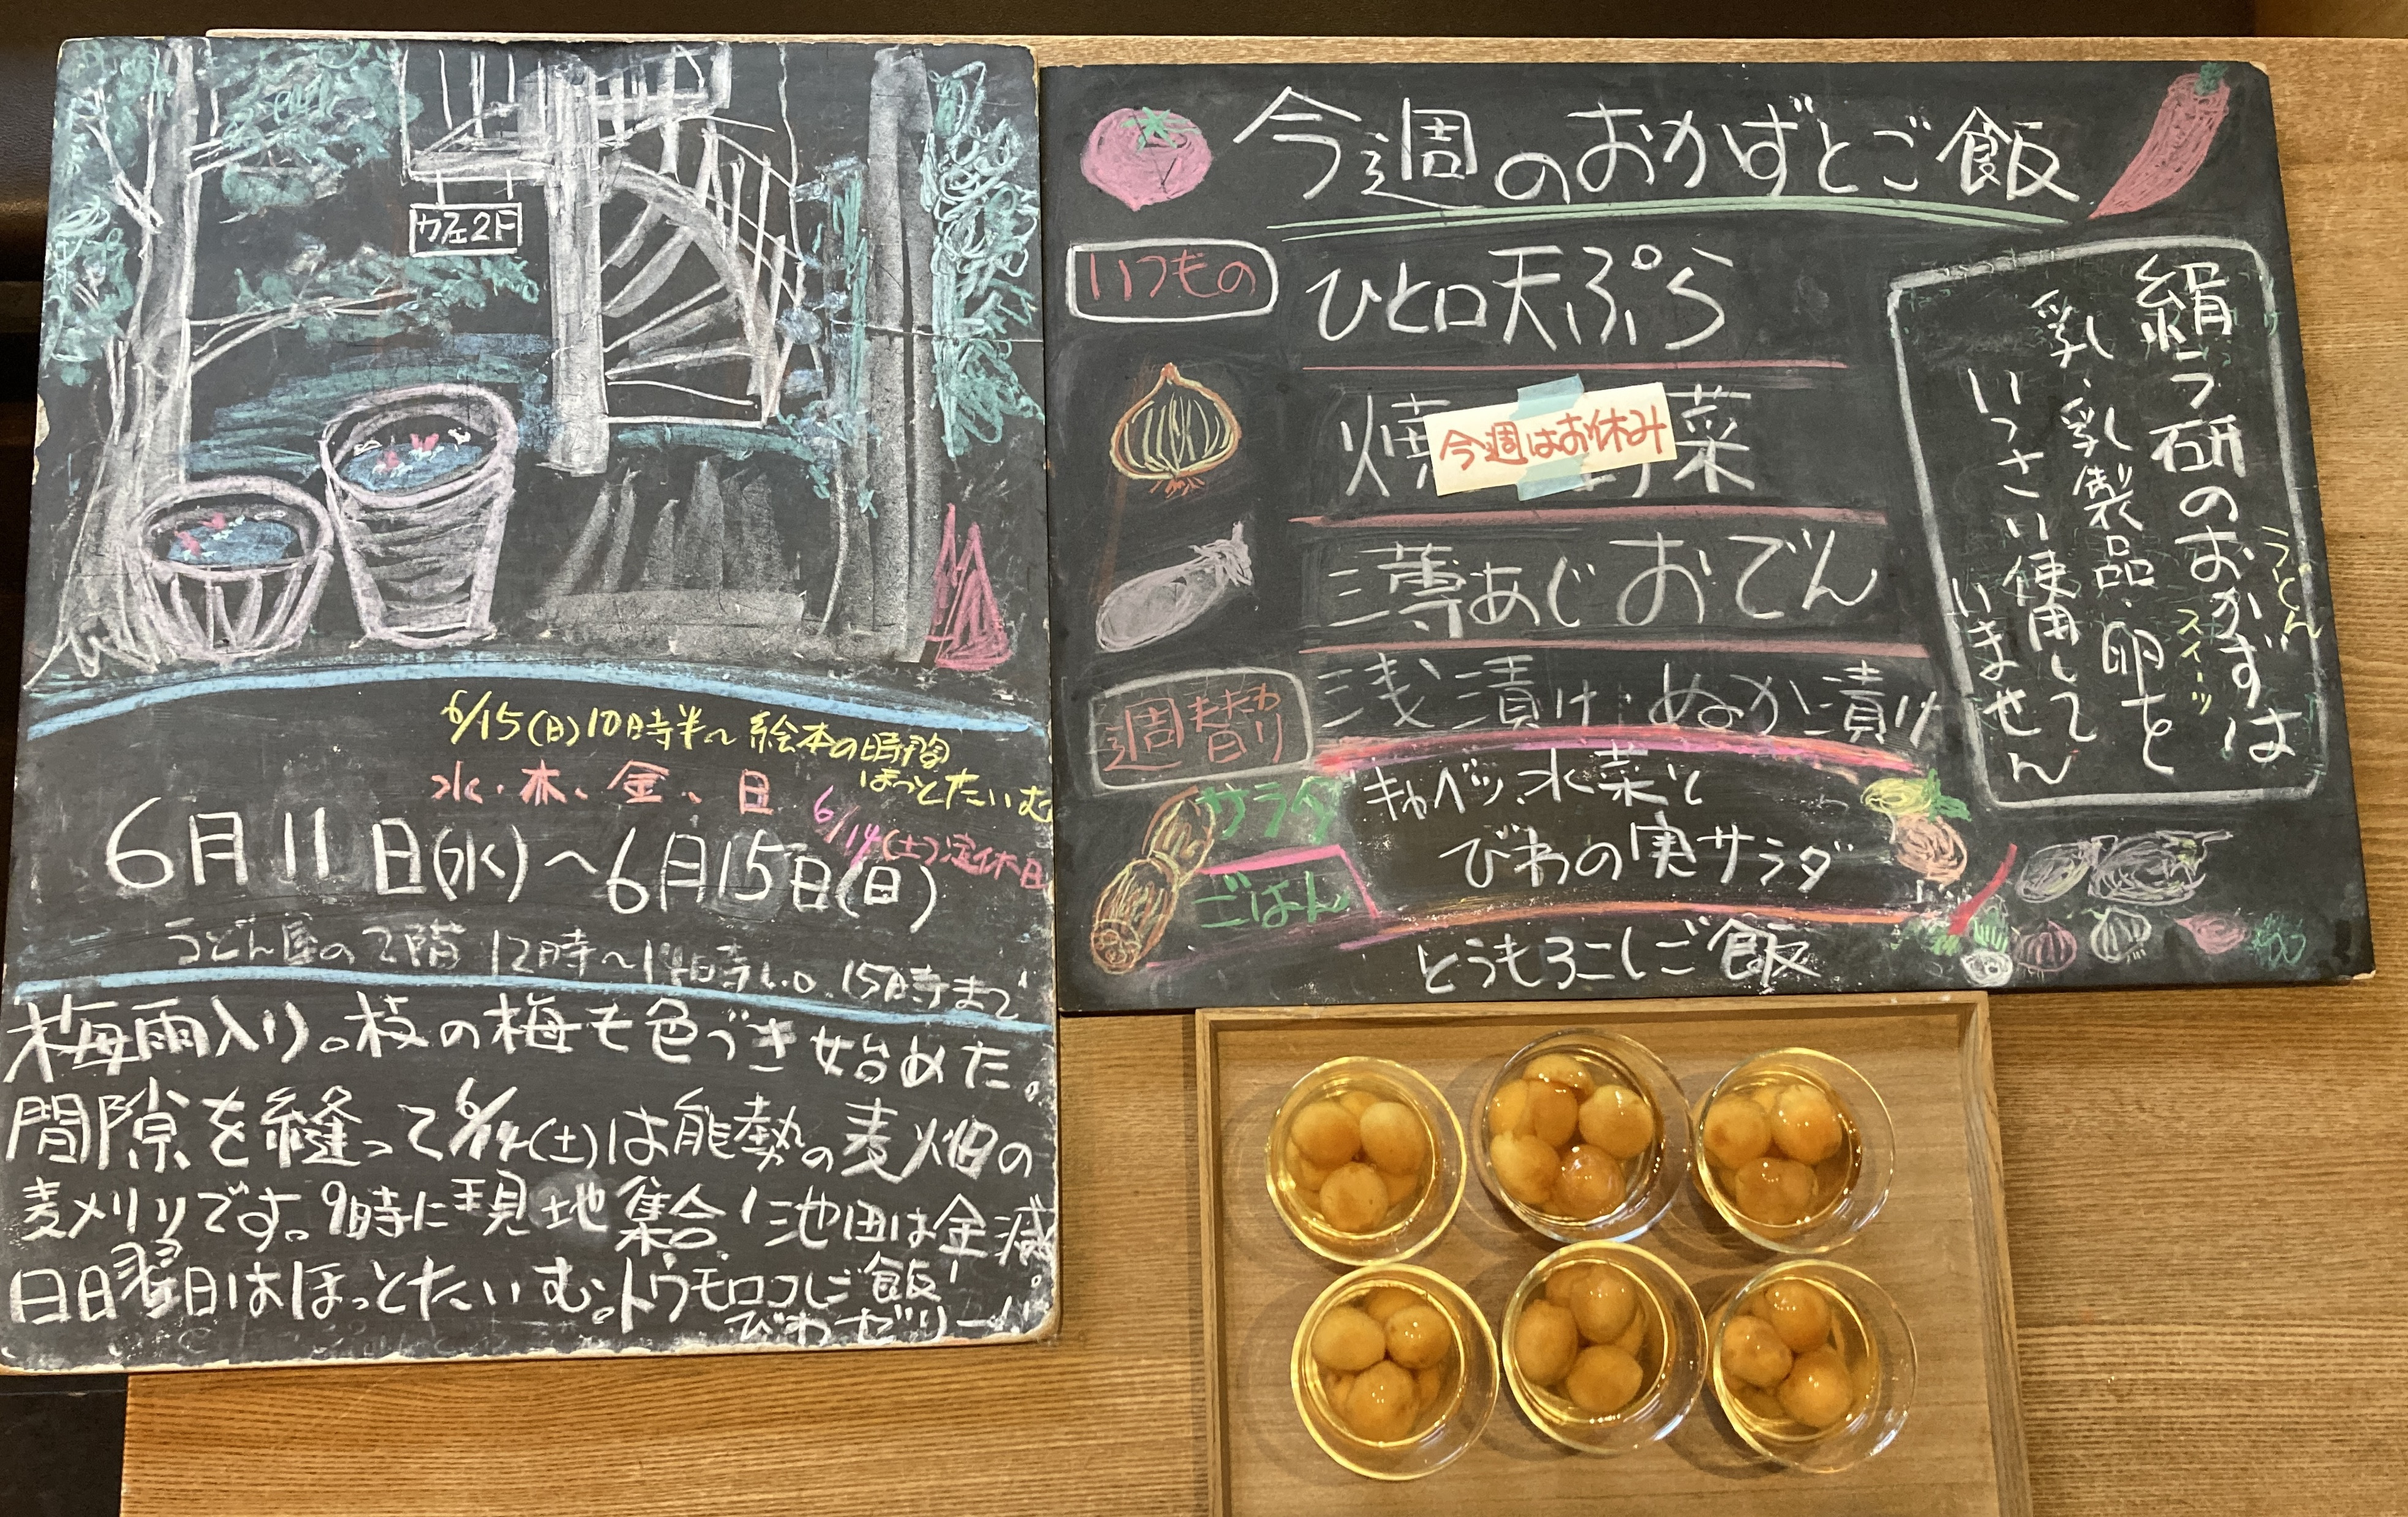 カフェ2F
6/15(日)10時半〜絵本の時間
ほっとたいむ
水・木、金、日
6/14(土)定休日
6月11日(水)〜6月15日(日)
うどん屋の2階 12時〜14時L.O. 15時まで
梅雨入り。枝の梅も色づき始めた。
間隙を縫って6/14(土)は能勢の麦畑の
麦メリリです。9時に現地集合!池田は全滅。
日日翌日はほっとたいむ。トウモロコシご飯!
びわゼリー!!
今週のおかずとご飯
いつもの
ひと口天ぷら
焼 菜
今週はお休み
薄あじおでん
浅漬け・ぬか漬け
週替り
サラダ
キャベツ、水菜と
びわの実サラダ
ごはん
とうもろこしご飯
絹ラ研のおかずは
うどん
スイーツ
乳・乳製品・卵を
いっさい使用して
いません